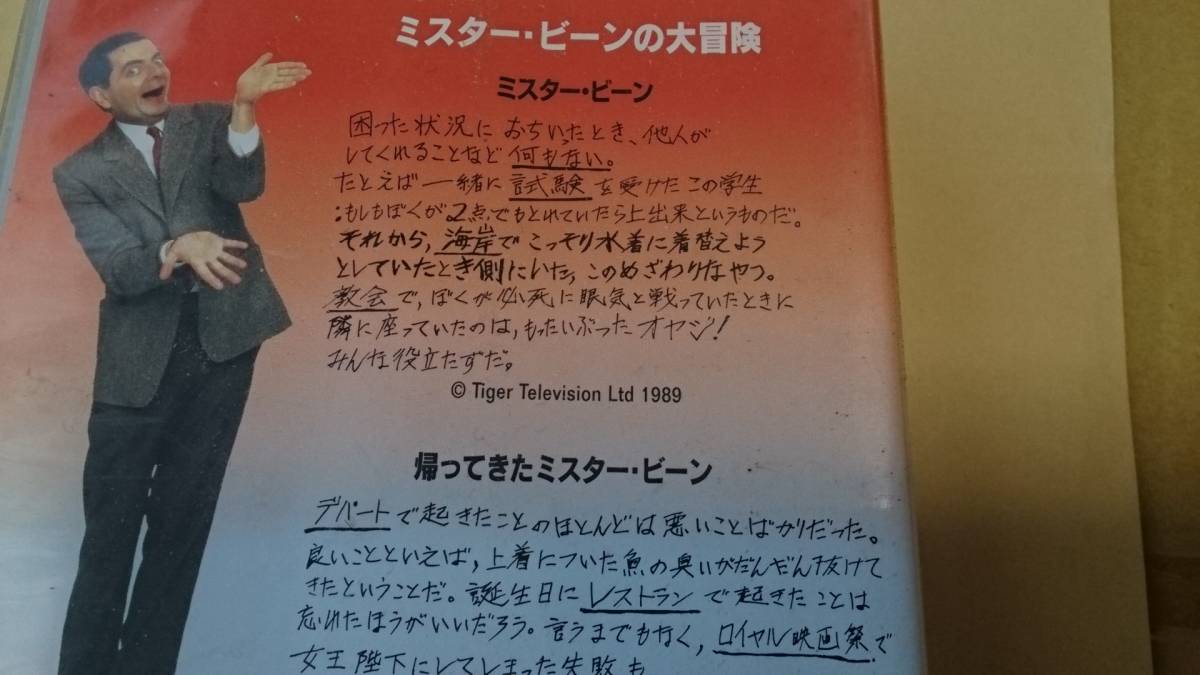 ミスター・ビーンの大冒険
ミスター・ビーン
困った状況におちいったとき、他人が
してくれることなど何もない。
たとえば一緒に試験を受けたこの学生
：もしもぼくが2点でもとれていたら上出来というものだ。
それから，海岸でこっそり水着に着替えよう
としていたとき側にいた，このめざわりなやつ。
教会で，ぼくが必死に眠気と戦っていたときに
隣に座っていたのは，もったいぶったオヤジ！
みんな役立たずだ。
© Tiger Television Ltd 1989
帰ってきたミスター・ビーン
デパートで起きたことのほとんどは悪いことばかりだった。
良いことといえば，上着についた魚の臭いがだんだん抜けて
きたということだ。誕生日にレストランで起きたことは
忘れたほうがいいだろう。言うまでもなく，ロイヤル映画祭で
女王陛下にしてしまった失敗も